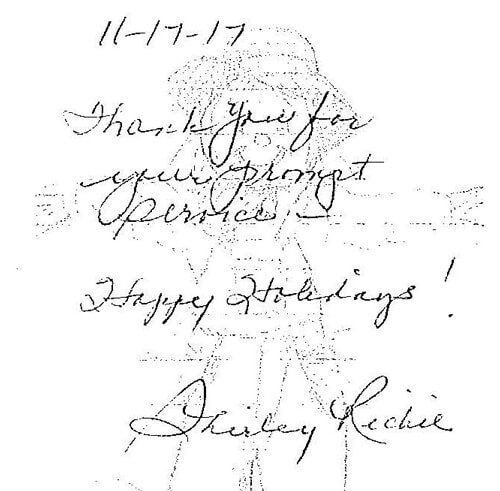 11-17-17
Thank you for
your prompt
service –
Happy Holidays!
Shirley Richie